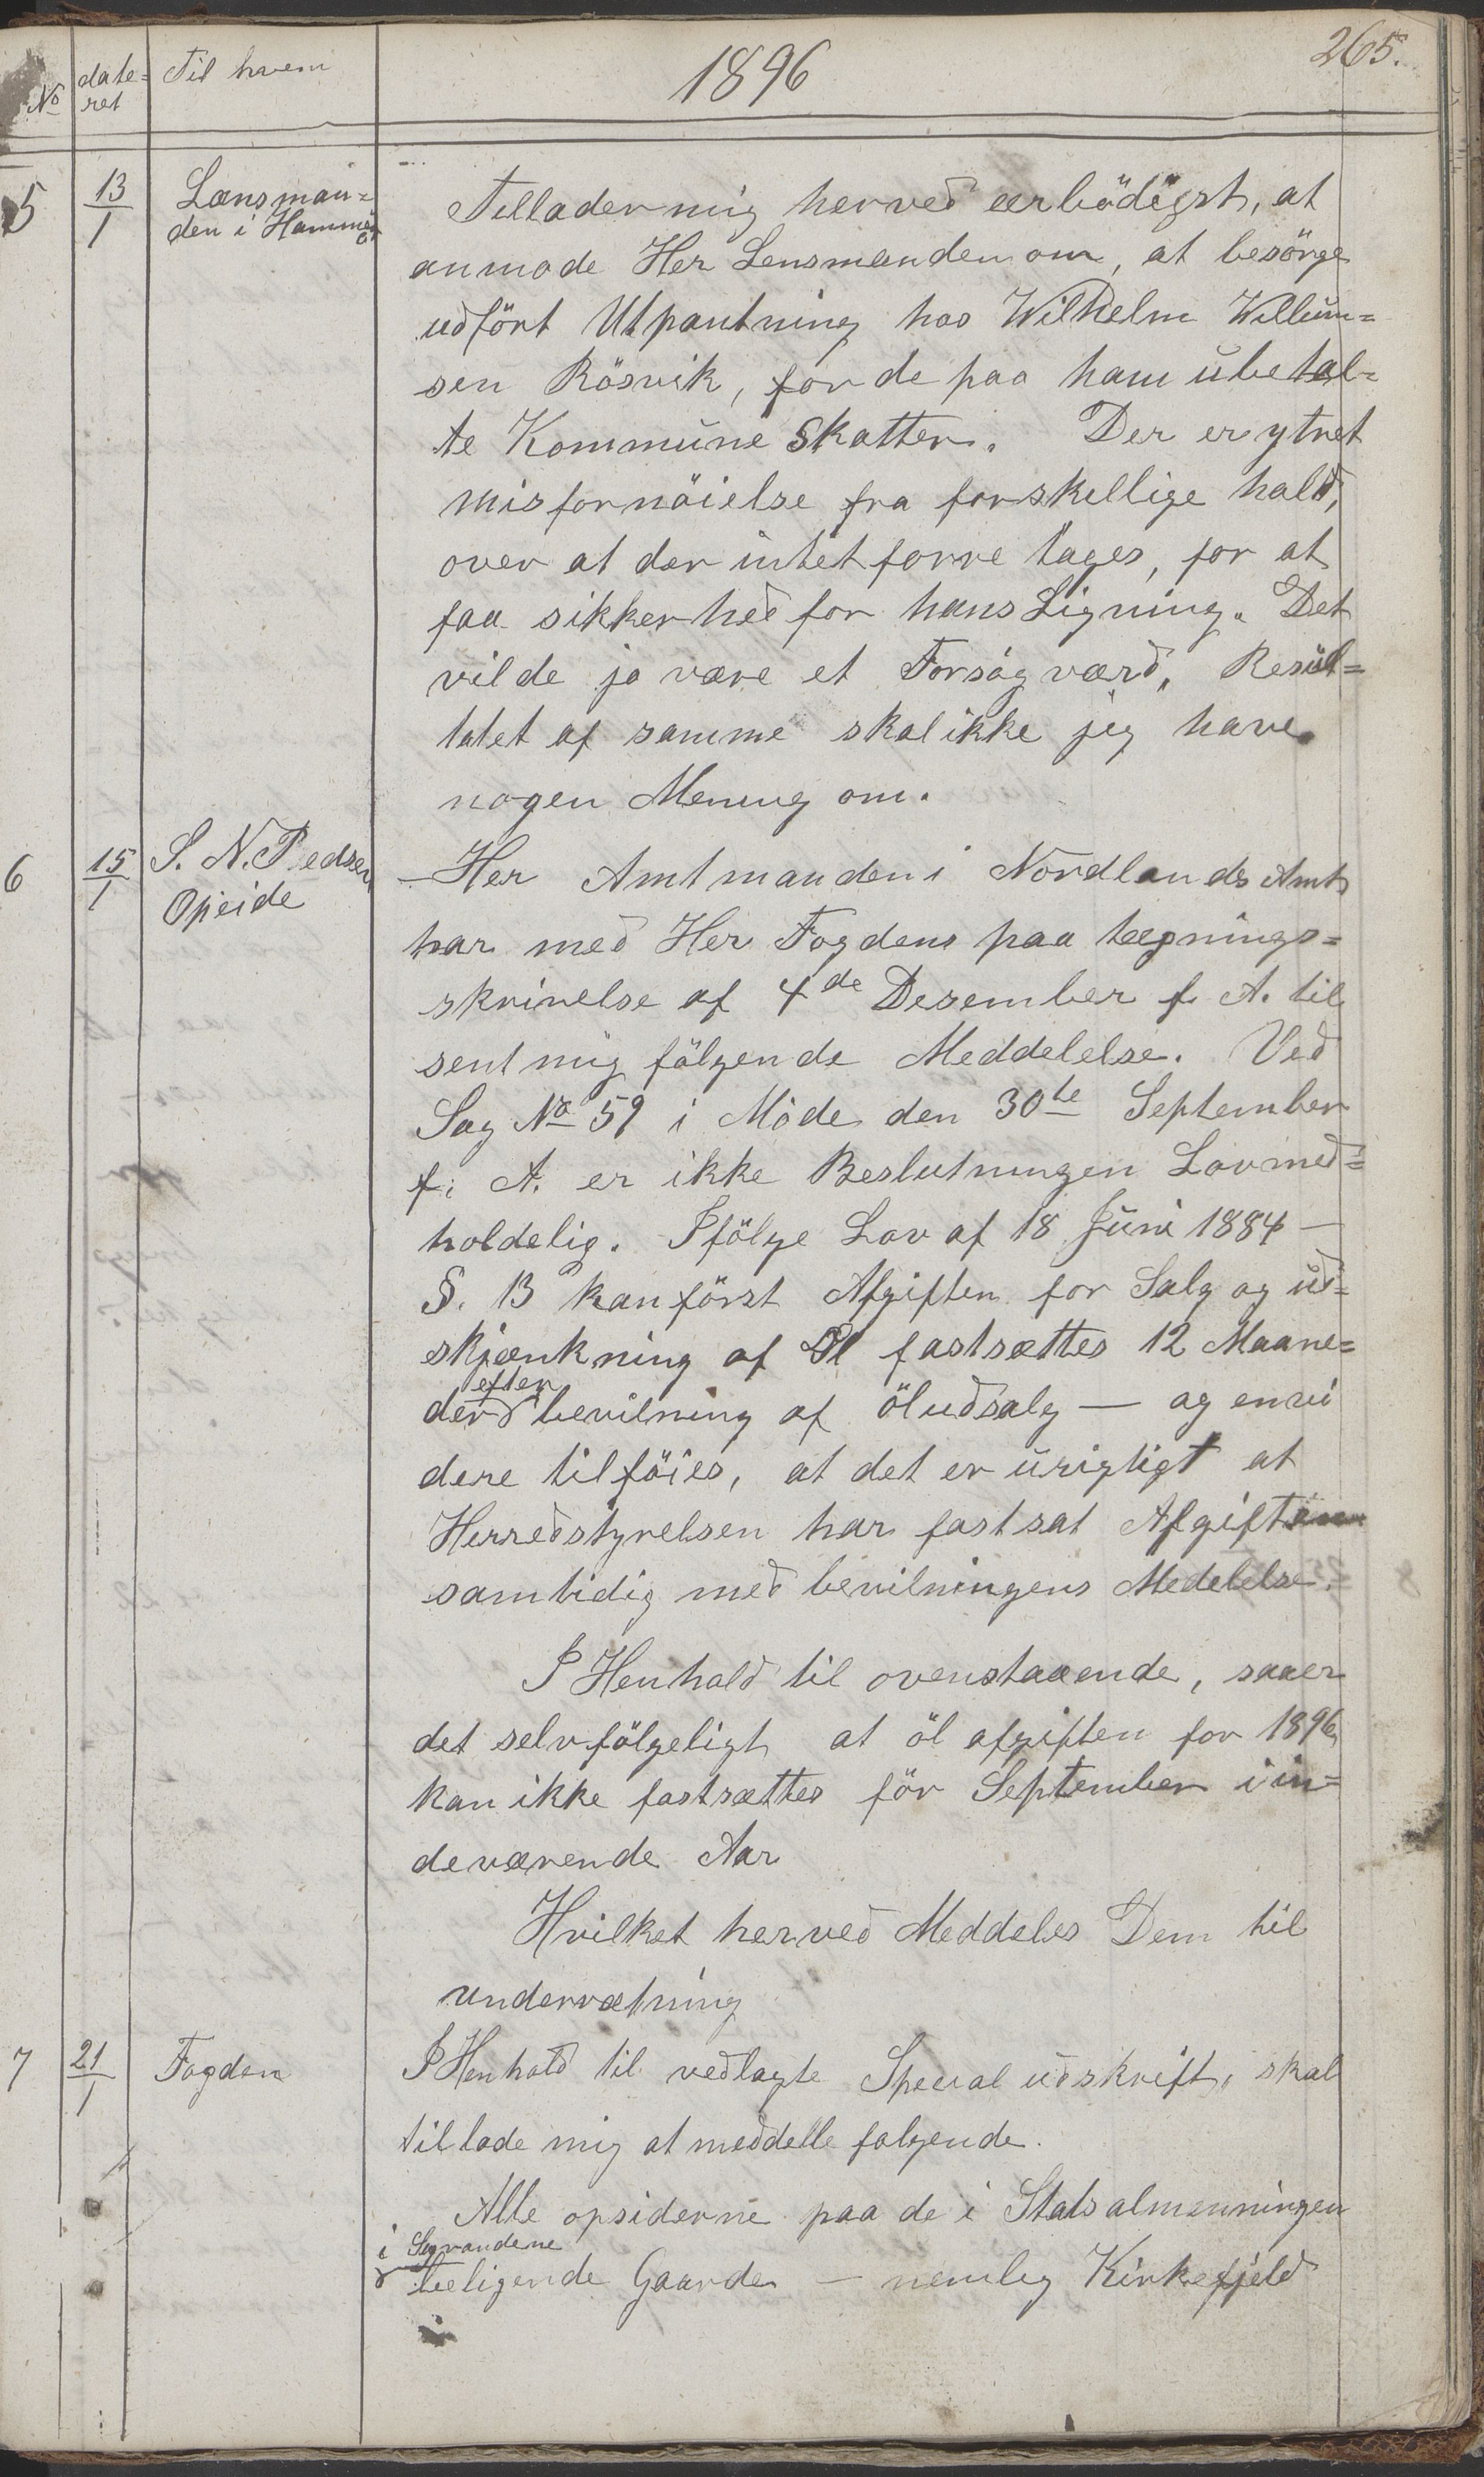 265.
1896
No
date=
ret
Til hvem
5
13/1
Lænsman=
den i Hammerö
Tillader mig herved ærbödigst, at
anmode Her Lensmanden om, at besörge
udfört Utpantning hos Wilhelm Willum=
sen Rösvik, for de paa ham ubetal=
te Kommune Skatter. Der er ytret
misfornöielse fra forskellige hald,
over at der intet forre tages, for at
faa sikkerhed for hans Ligning. Det
vilde jo være et Forsög værd, Resul=
tatet af samme skal ikke jeg have
nogen Mening om.
6
15/1
S. N. Pedsen
Opeide
Her Amtmanden i Nordlands Amt
har med Her Fogdens paa tegnings=
skrivelse af 4de Desember f. A. til
sent mig fölgende Meddelelse. Ved
Sag No 59 i Möde den 30te September
f. A. er ikke Beslutningen Lovmed=
holdelig. Ifölge Lov af 18 Juni 1884 —
§. 13 kan först Afgiften for Salg og ud=
skjænkning af Öl fastsættes 12 Maane=
der efter bevilning af öludsalg — og envi
dere tilföies, at det er urigtigt at
Herredstyrelsen har fastsat Afgiften
samtidig med bevilningens Medelelse.
I Henhold til ovenstaaende, saa er
det selvfölgeligt at öl afgiften for 1896
kan ikke fastsættes för September i in=
deværende Aar
Hvilket herved Meddeles Dem til
undervætning
7
21/1
Fogden
I Henhold til vedlagte Special udskrift, skal
tillade mig at meddelle folgende.
Alle opsiderne paa de i Statsalmenningen
i
beligende Gaarde — nemlig Kirkefjeld